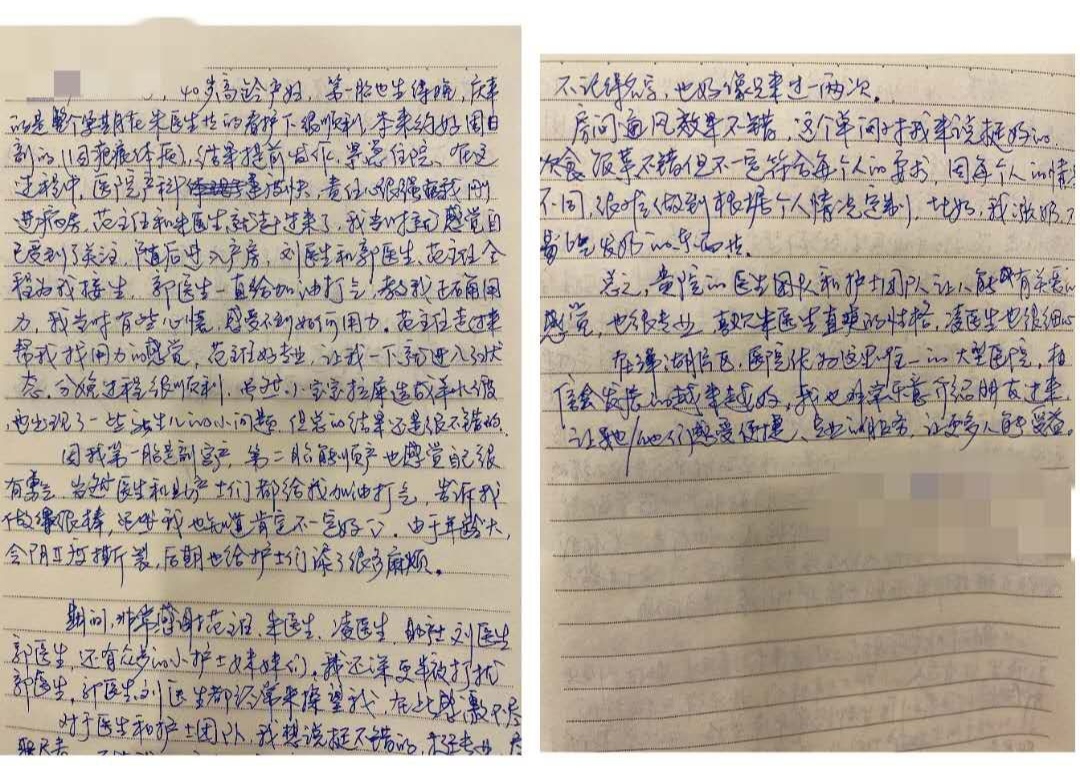 40岁高龄产妇，第一胎也生得晚，庆幸
的是整个孕期在朱医生的看护下很顺利，本来约好周日
剖的（因疤痕体质），结果提前发作，紧急住院。在这
过程中，医院产科速度快，责任心很强，我刚
进病房，范主任和朱医生就进过来了，我当时感觉自
己受到了关注，随后进入产房，刘医生和郭医生、范主任全
程为我接生，郭医生一直给加油打气，教我正确用
力，我当时有些心慌，感受不到如何用力。范主任走过来
帮我找用力的感觉，范主任好专业，让我一下就进入了状
态，分娩过程很顺利，小宝宝拉屎造成羊水
也出现了一些的小问题，但总的结果还是很不错的。
因我第一胎是剖宫产，第二胎能顺产也感觉自己很
有，医生和护士们都给我加油打气，告诉我
做得很棒，我也知道肯定不一定好。由于年龄大，
会阴II度撕裂，后期也给护士们添了很多麻烦。
期间，非常感谢范主任、朱医生、凌医生、刘医生
郭医生，还有众多的小护士妹妹们。我还深夜打扰
郭医生，郭医生、刘医生都经常来探望我，在此感激不尽
对于医生和护士团队，我想说挺不错的，
不记得名字，也好像只来过一两次。
房间通风效果不错，这个单间对我来说挺好的
饮食 饭菜不错但不一定符合每个人的要求，因每个人的情
不同，很难做到根据个人情况定制，比如，我激奶，不
易吃发奶的东西
总之，贵院的医生团队和护士团队让人能有关爱的
感觉，也很专业，喜欢朱医生直爽的性格，凌医生也很细心
在湖片区，医院作为这里唯一的大型医院，相
信会发展的越来越好，我也非常乐意介绍朋友过来，
让她/他们感受便捷、专业的服务，让更多人能受益。